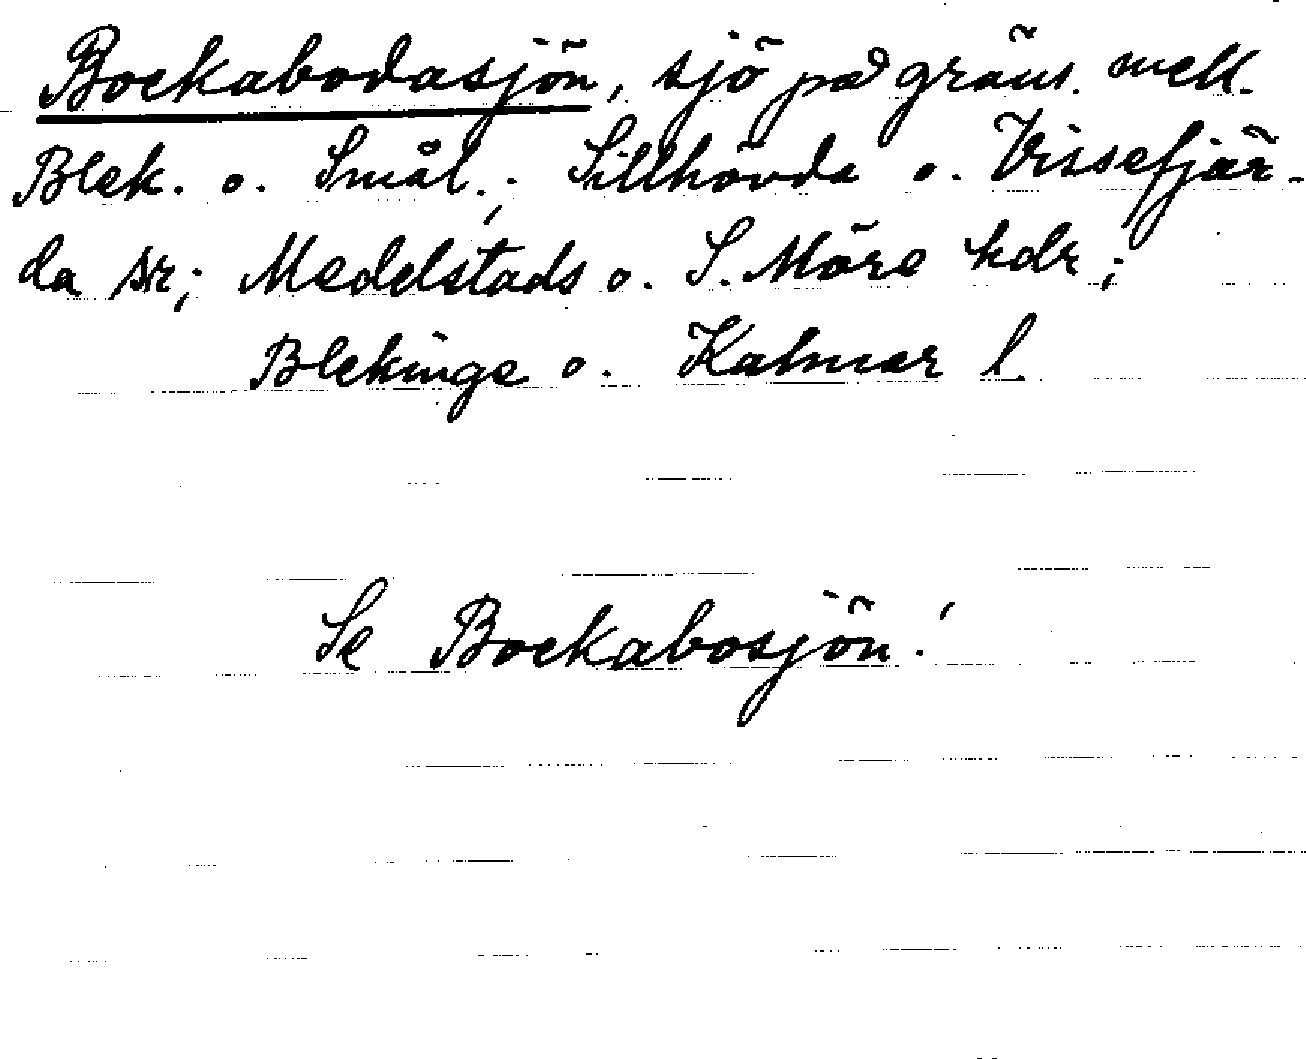 Bockabodasjön, sjö på gräns. mell.
Blek. o. Smål.; Sillhövda o. Vissefjär-
da snr; Medelstads o. S. Möre hdr;
Blekinge o. Kalmar l
Se Bockabosjön!